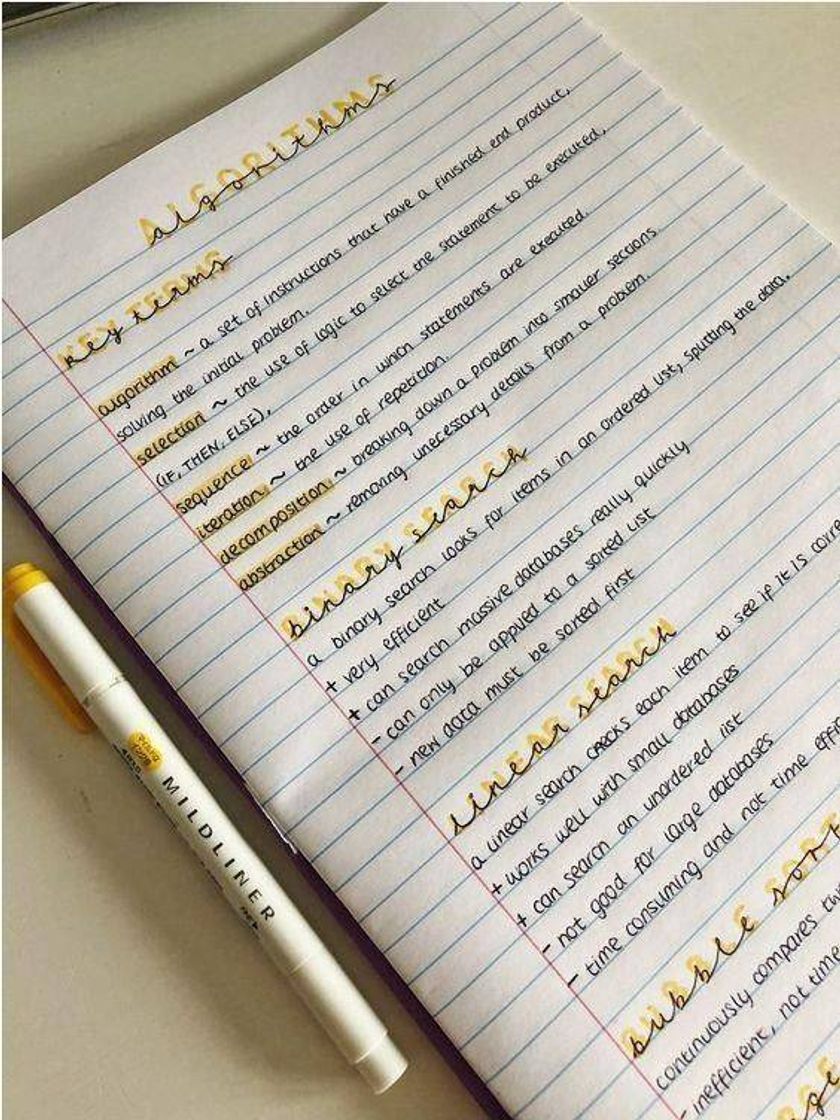 ALGORITHMS
algorithms
KEY TERMS
key terms
algorithm ~ a set of instructions that have a finished end product,
solving the initial problem.
selection ~ the use of logic to select the statement to be executed,
(IF, THEN, ELSE),
sequence ~ the order in which statements are executed.
iteration ~ the use of repetition.
decomposition ~ breaking down a problem into smaller sections.
abstraction ~ removing unnecessary details from a problem.
BINARY SEARCH
binary search
a binary search looks for items in an ordered list, splitting the data.
+ very efficient
+ can search massive databases really quickly
- can only be applied to a sorted list
- new data must be sorted first
LINEAR SEARCH
linear search
a linear search checks each item to see if it is corre
+ works well with small databases
+ can search an unordered list
- not good for large databases
- time consuming and not time effi
BUBBLE SORT
bubble sort
continuously compares
- inefficient, not time
MILDLINER